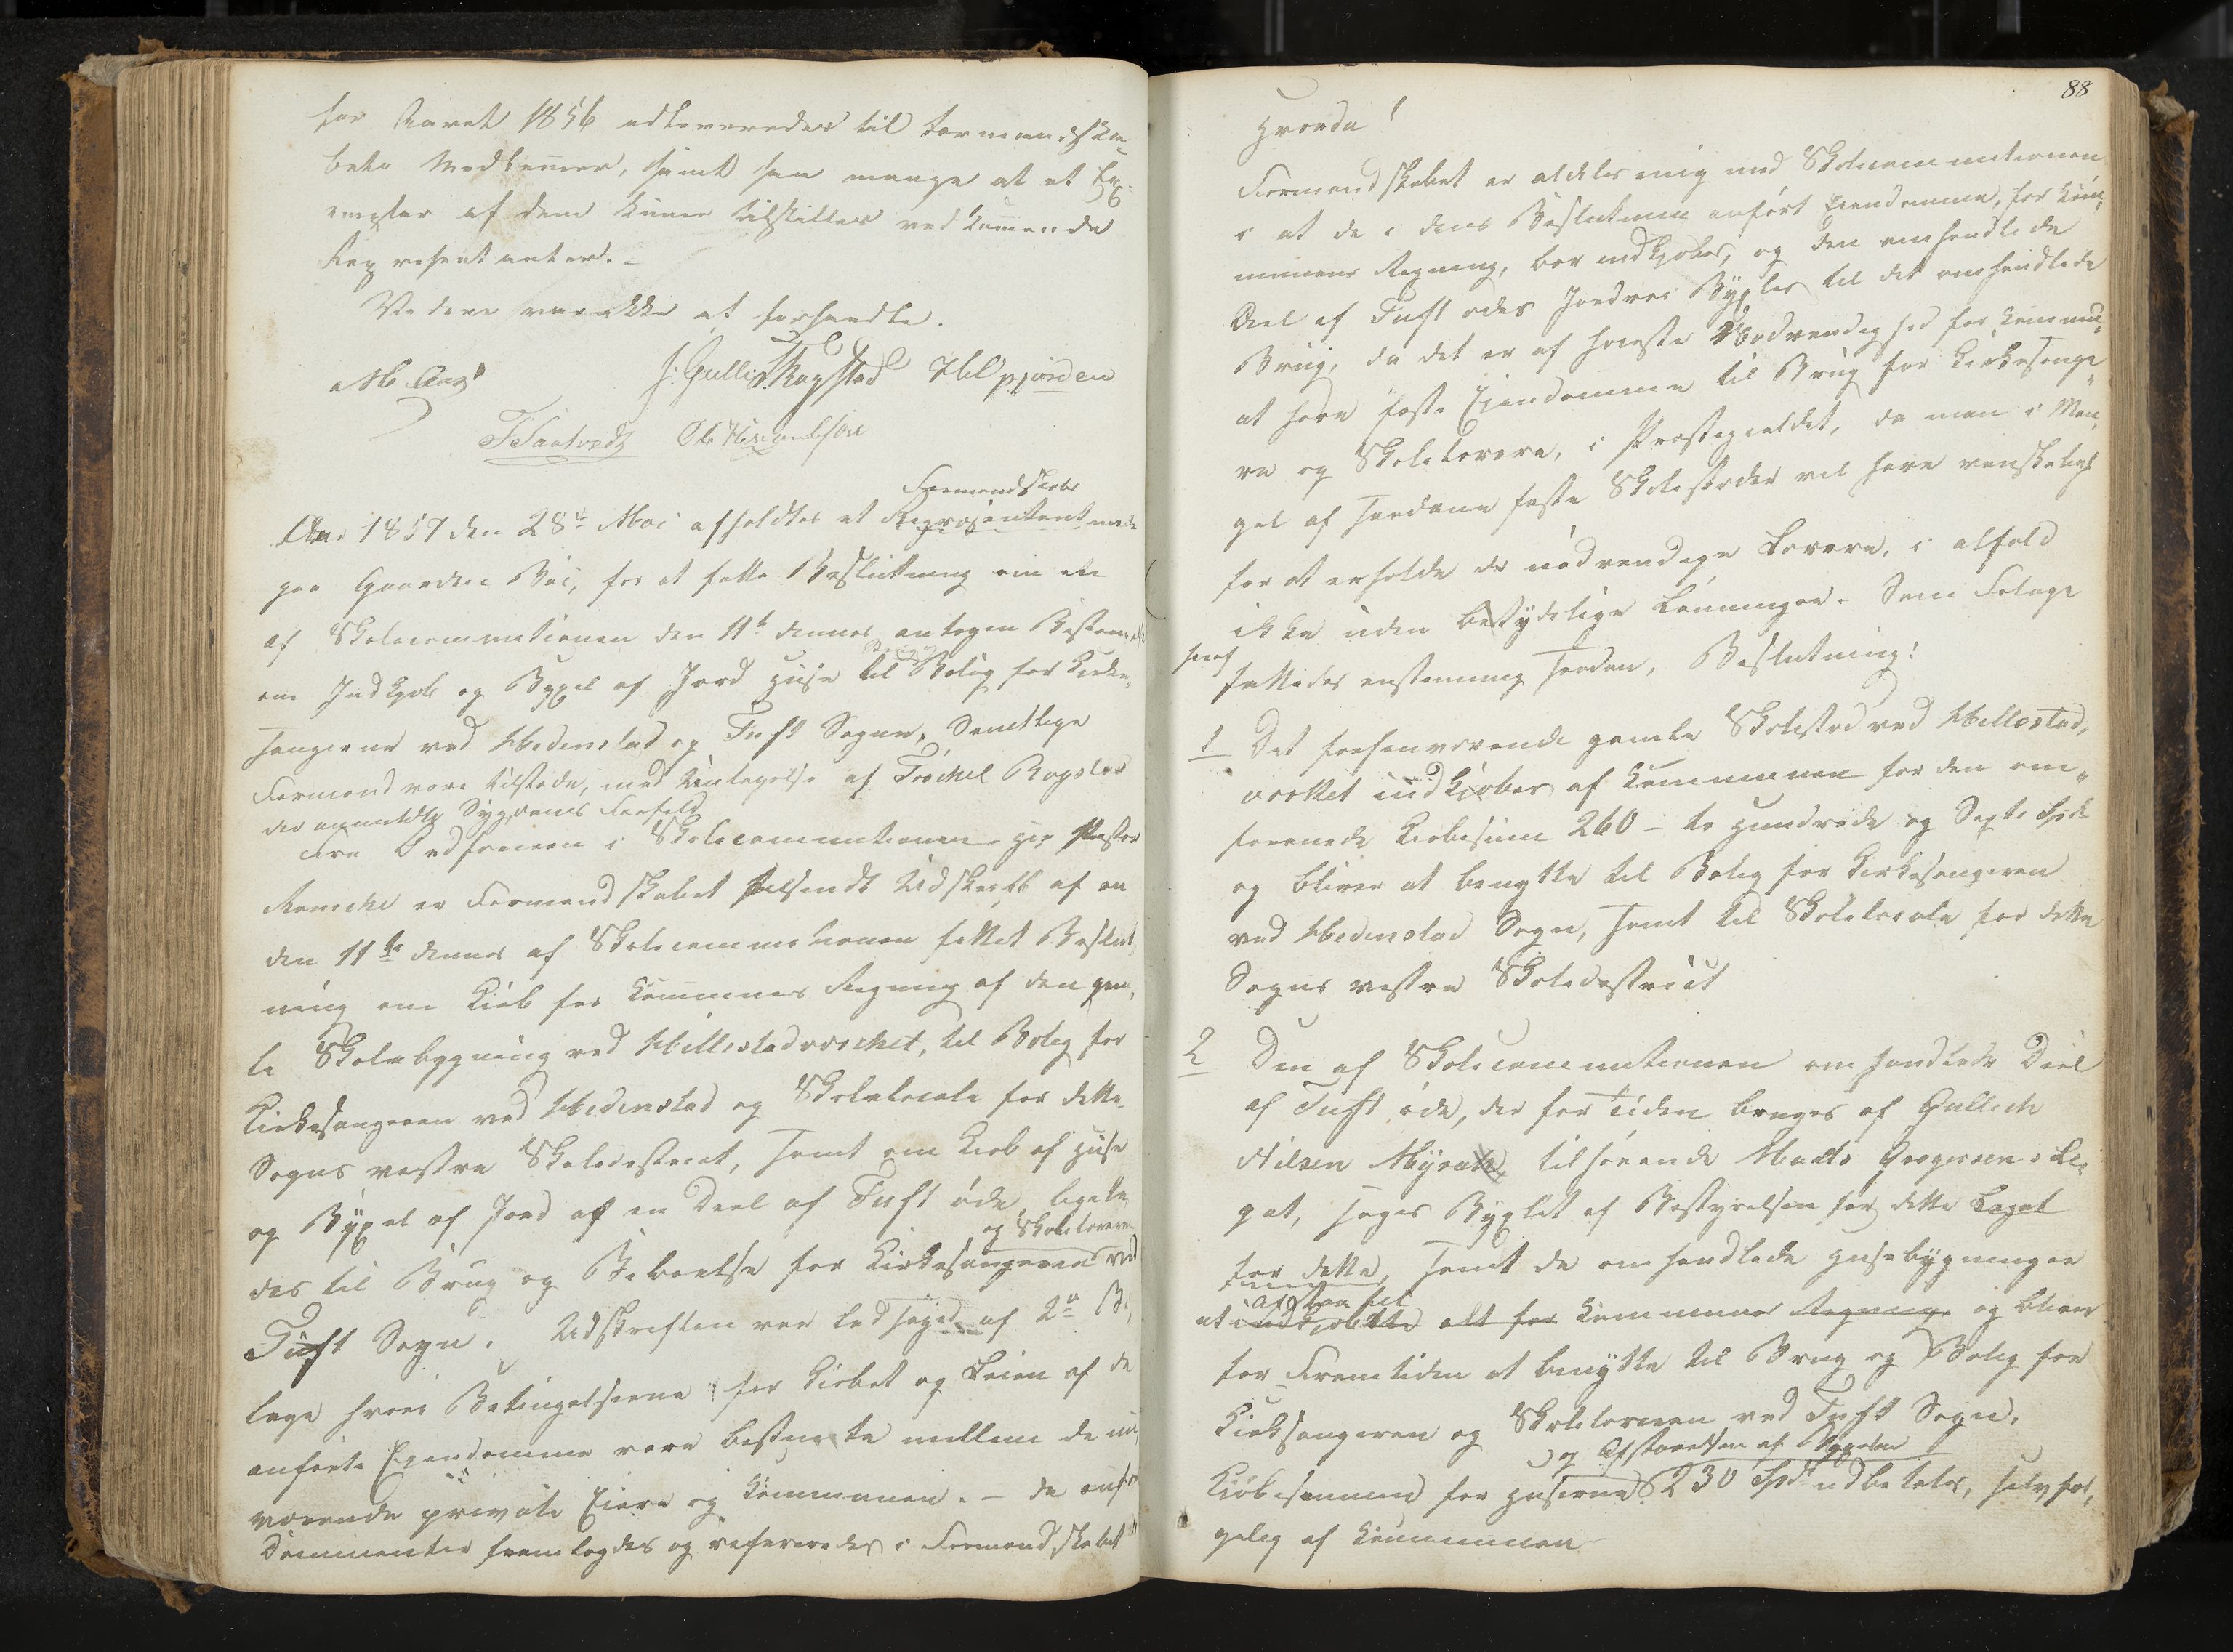 for Aaret 1856 adleveredes til Formandska-
bets Medlemer, samt saa mange at et Ex-
emplar af dem kunne tilstilles vedkomende
Representanter. –
Videre var ikke at forhandle.
J. Gulli Skogstad
T Saatvedt
Formandskabs
Aar 1857 den 28de Mai afholdtes et Representantmøde
paa Gaarden Bøe, for at fatte Beslutning om en
af Skolecommitionen den 11te dennes antagen Bestem
om Indkjøb og Bygsel af Jord Huse til Bolig for Kirke-
sangerne ved Hedenstad og Tuft Sogne, Samtlige
Formænd vare tilstæde, med Undtagelse af Torckel
der anmeldte Sygdoms Forfald
Fra Ordføreren i Skolecommitionen Hr Pastor
er Formandskabet tilsendt Udskrift af en
den 11te dennes af Skolecommitionen fattet Beslut-
ning om Kiøb for Kommunes Regning af den gam-
le Skolebygning ved Hillestadværket, til Bolig for
Kirkesangeren ved Hedenstad og Skolelocale for dette
Sogns vestre Skoledistrict, samt om Kiøb af Huse
og Bygsel af Jord af en Deel af Tuft øde ligele-
og Skolelæreren
des til Brug og Beboelse for Kirkesangeren ved
Tuft Sogn. Udskriften var ledsaget af 2de Bi-
lage hvori Betingelserne for Kiøbet og Leien af de
anførte Ejendomme vare bestemte mellem de nu-
værende private Eiere og Kommunen. – De anf
Documenter fremlagdes og refereredes i Formandskabet
88
Hvorda!
Formandskabet er aldeles enig med Skolecommitionen
i at de i dens Beslutning anført Eiendomme, for Kom-
munens Regning, bør indkjøbes, og den omhandlede
Deel af Tuft ødes Jordvei Bygsles til det omhandlede
Brug, da det er af høieste Nødvendighed for Kommu-
at have faste Ejendomme til Brug for Kirkesange-
re og Skolelærere, i Præstegieldet, da man i Man-
gel af saadane faste Skolestæder vil have vanskeligt
for at erholde de nødvendige Lærere, i alfald
ikke uden betydelige Lønninger. Som Følge
heraf
fattedes enstemmig saadan, Beslutning:
1 Det forhenværende gamle Skolested ved Hillestad-
værket indkiøbes af Kommunen for den om-
forenede Kiøbesum 260 – to Hundrede og Sexti Spd
og bliver at benytte til Bolig for Kirkesangeren
ved Hedenstad Sogn, samt til Skolelocale for dette
Sogns vestre Skoledistrict
2 Den af Skolecommitionen omhandlede Deel
af Tuft øde, der for Tiden bruges af Gullich
Nilsen Myra tilhørende Mads Gregersens Le-
gat, søges Bygslet af Bestyrelsen for dette Legat
for dette, samt de omhandlede Husebygninger
afstaa til
at indkjøbte alt for Kommunes Regning og bliver
for Fremtiden at benytte til Brug og Bolig for
Kirksangeren og Skolelæreren ved Tuft Sogn.
og Afstaaelsen af Bygselen
Kiøbesummen for Huserne 230 Spd udbetales, selvføl-
gelig af Kommunen –